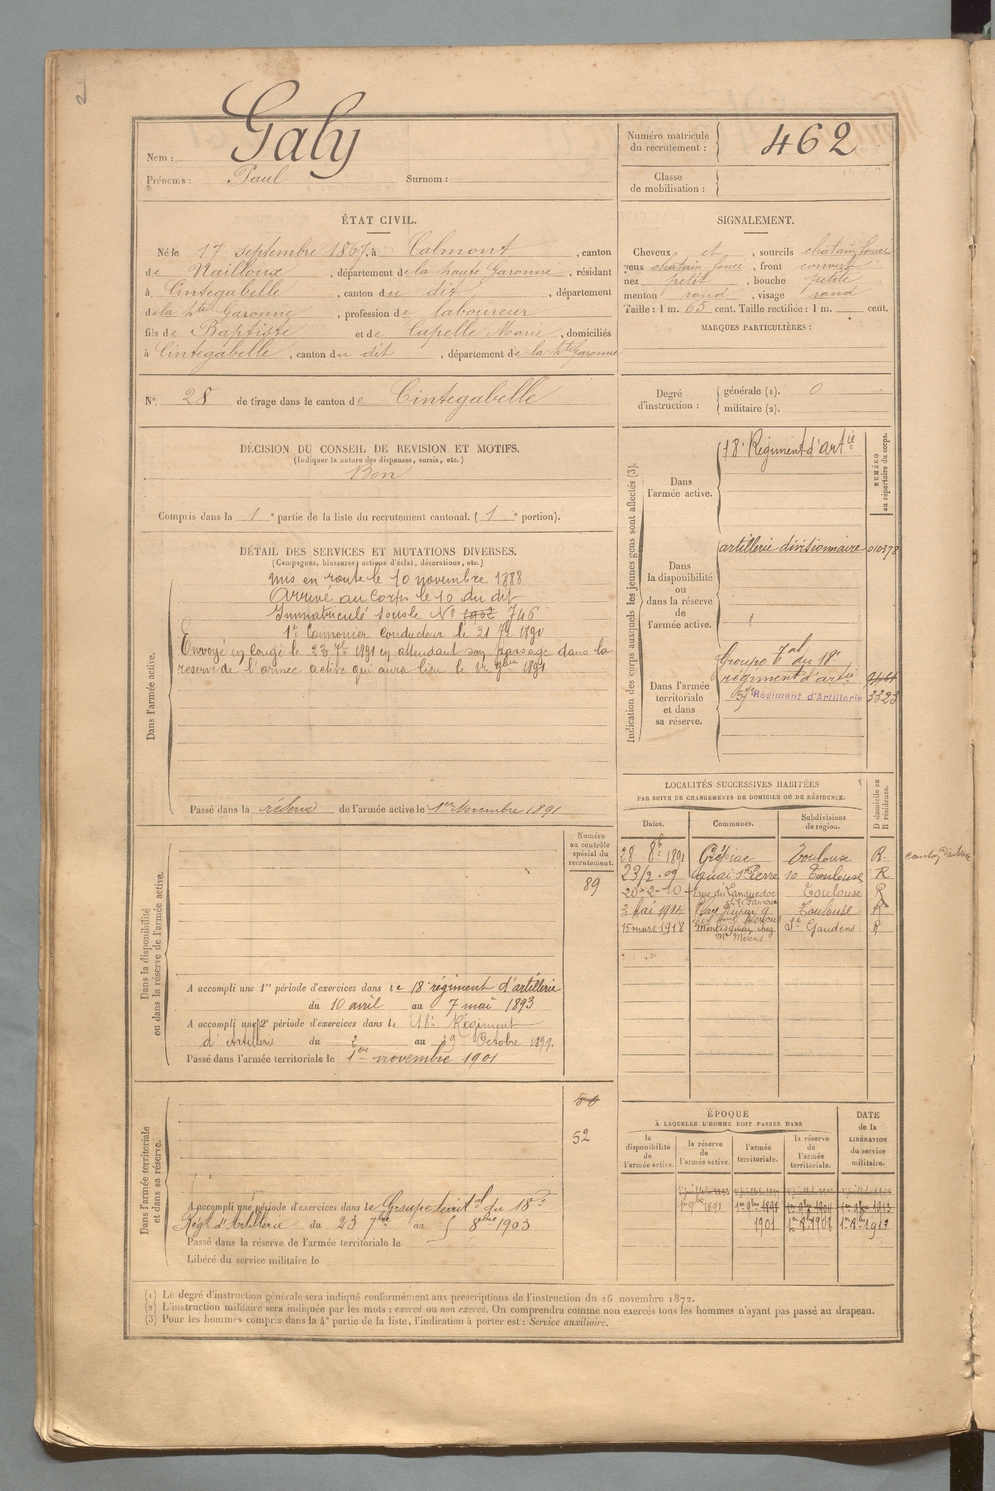 Nom : Galy
Prénoms : Paul Surnom :
Numéro matricule du recrutement : 462
Classe de mobilisation :
ÉTAT CIVIL.
Né le 17 septembre 1867, à Calmont, canton
de Nailloux, département de la haute Garonne, résidant
à Cintegabelle, canton du dit, département
de la hte Garonne, profession de laboureur
fils de Baptiste et de Capelle Marie, domiciliés
à Cintegabelle, canton du dit, département de la hte Garonne
SIGNALEMENT.
Cheveux et, sourcils chatain foncé
yeux chatain foncé, front couvert
nez petit, bouche petite
menton rond, visage rond
Taille : 1 m. 65 cent. Taille rectifiée : 1 m. cent.
MARQUES PARTICULIÈRES :
N° 28 de tirage dans le canton de Cintegabelle
Degré d'instruction : générale (1). 0
militaire (2).
DÉCISION DU CONSEIL DE REVISION ET MOTIFS.
(Indiquer la nature des dispenses, sursis, etc.)
Bon
Compris dans la 1e partie de la liste du recrutement cantonal. (1e portion).
DÉTAIL DES SERVICES ET MUTATIONS DIVERSES.
(Campagnes, blessures, actions d'éclat, décorations, etc.)
Dans l'armée active.
Mis en route le 10 novembre 1888
Arrivé au Corps le 10 du dit
Immatriculé sous le N° 746
1er Canonier conducteur le 21 7bre 1890
Envoyé en congé le 23 7bre 1891 en attendant son passage dans la
reserve de l'armée active qui aura lieu le 1er 9bre 1891
Passé dans la réserve de l'armée active le 1er Novembre 1891
Indication des corps auxquels les jeunes gens sont affectés (3).
NUMÉRO au répertoire du corps.
Dans l'armée active.
18e Régiment d'artie
Dans la disponibilité ou dans la réserve de l'armée active.
artillerie divisionnaire 010373
Dans l'armée territoriale et dans sa réserve.
Groupe tal du 18e
régiment d'artie
57e Régiment d'Artillerie 3323
LOCALITÉS SUCCESSIVES HABITÉES
PAR SUITE DE CHANGEMENTS DE DOMICILE OU DE RÉSIDENCE.
Dates. Communes. Subdivisions de région. D domicile ou R résidence.
28 8bre 1891 Grépiac Toulouse R.
23/2.09 quai St Pierre 10 Toulouse R
20-2-10 rue du Languedoc Toulouse R
2 Mai 1914 Place 9 Toulouse R
15 mars 1918 Montesquieu chez Mr St Gaudens R
Dans la disponibilité ou dans la réserve de l'armée active.
Numéro au contrôle spécial du recrutement.
89
A accompli une 1re période d'exercices dans le 18e régiment d'artillerie
du 10 avril au 7 mai 1893
A accompli une 2e période d'exercices dans le 18e Régiment
d'Artillerie du 2 au 29 Octobre 1899.
Passé dans l'armée territoriale le 1er novembre 1901
Dans l'armée territoriale et dans sa réserve.
52
A accompli une période d'exercices dans le Groupe territal du 18e
Régt d'Artillerie du 23 7bre au 8bre 1903
Passé dans la réserve de l'armée territoriale le
Libéré du service militaire le
ÉPOQUE
À LAQUELLE L'HOMME DOIT PASSER DANS
la disponibilité de l'armée active. la réserve de l'armée active. l'armée territoriale. la réserve de l'armée territoriale.
DATE de la LIBÉRATION du service militaire.
1er 9bre 1891
1901 1er 8bre 1907 1er 8bre 1913
(1) Le degré d'instruction générale sera indiqué conformément aux prescriptions de l'instruction du 26 novembre 1872.
(2) L'instruction militaire sera indiquée par les mots : exercé ou non exercé. On comprendra comme non exercés tous les hommes n'ayant pas passé au drapeau.
(3) Pour les hommes compris dans la 4e partie de la liste, l'indication à porter est : Service auxiliaire.